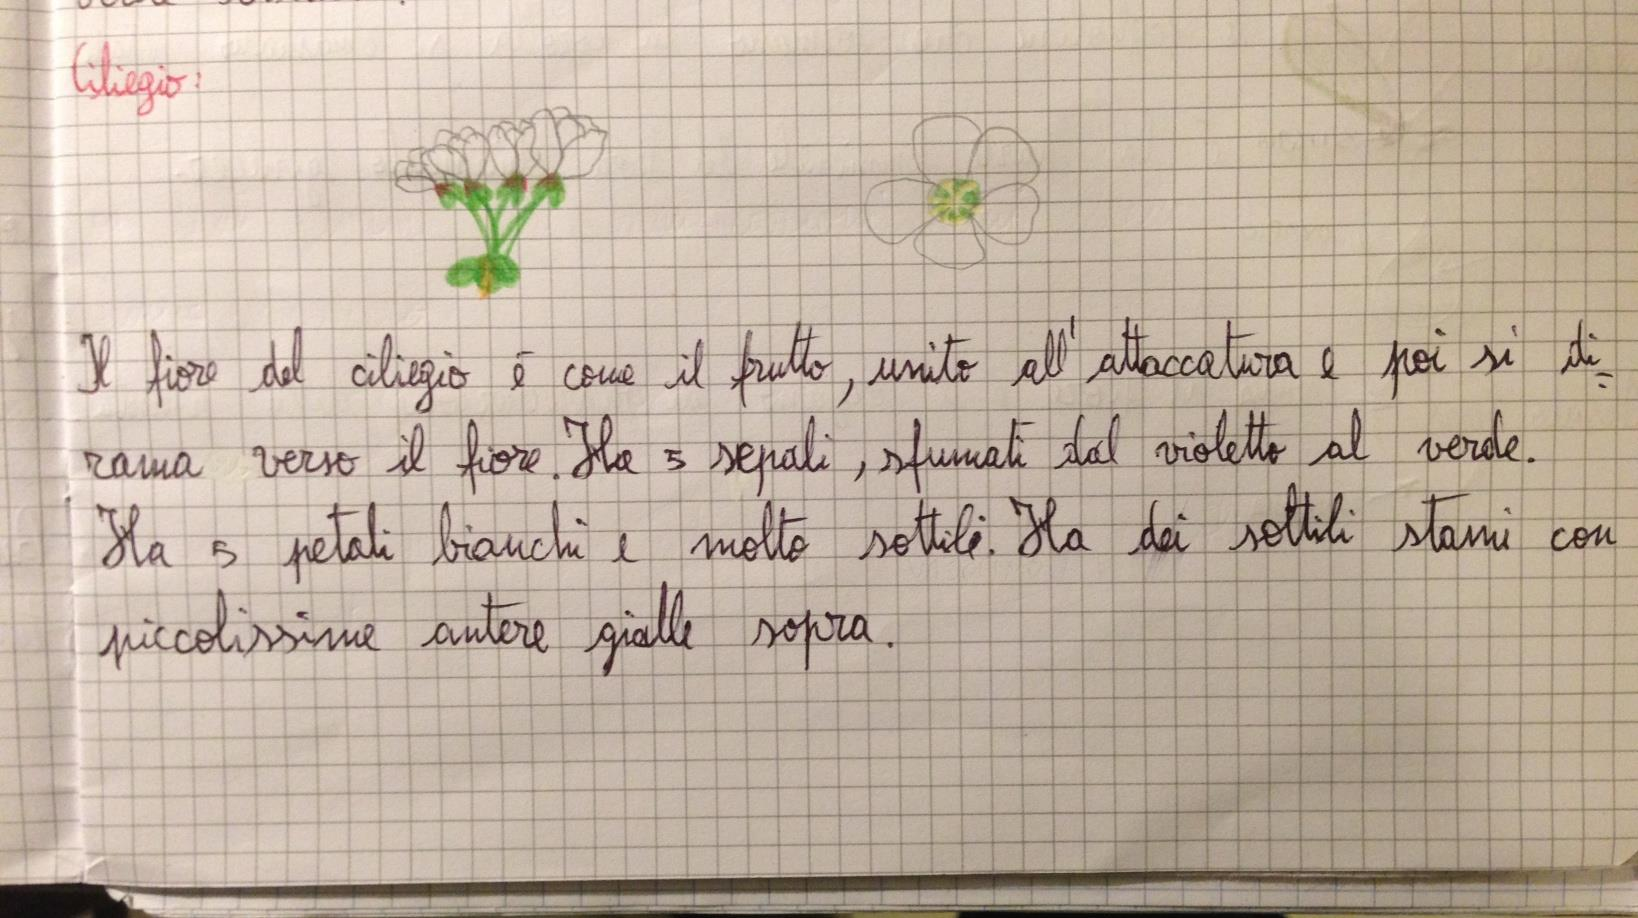 Ciliegio:
Il fiore del ciliegio è come il frutto, unito all'attaccatura e poi si di=
rama verso il fiore. Ha 5 sepali, sfumati dal violetto al verde.
Ha 5 petali bianchi e molto sottili. Ha dei sottili stami con
piccolissime antere gialle sopra.